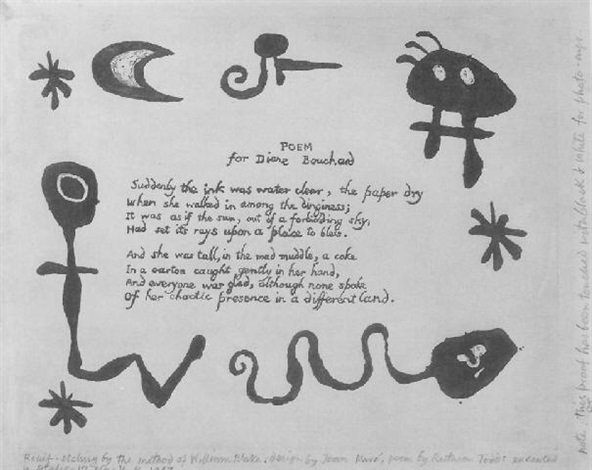 POEM
for Diane Bouchard
Suddenly the ink was water clear, the paper dry
When she walked in among the dinginess;
It was as if the sun, out of a forbidding sky,
Had set its rays upon a place to bless.
And she was tall, in the mad muddle, a coke
In a carton caught gently in her hand,
And everyone was glad, although none spoke
Of her chaotic presence in a different land.
Relief-etching by the method of William Blake, design by Joan Miró, poem by Ruthven Todd executed
Note: this proof has been touched with black & white for photo-engr